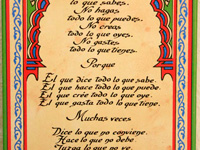 lo que sabes.
No hagas
todo lo que puedes.
No creas
todo lo que oyes.
No gastes
todo lo que tienes.
Porque
El que dice todo lo que sabe.
El que hace todo lo que puede.
El que cree todo lo que oye.
El que gasta todo lo que tiene.
Muchas veces
Dice lo que no conviene.
Hace lo que no debe.
Juzga lo que no ve.